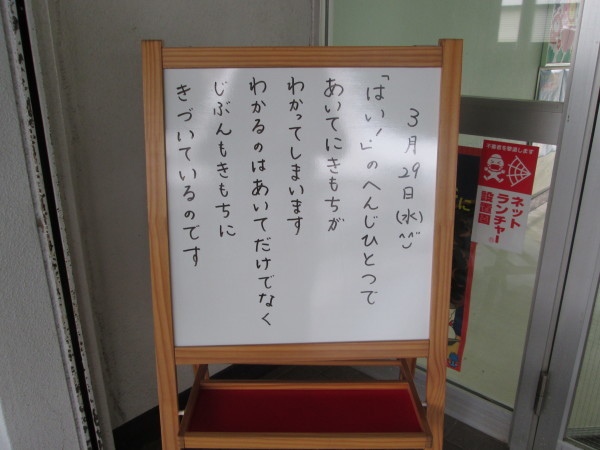 3月29日(水)^^
「はい！」のへんじひとつで
あいてにきもちが
わかってしまいます
わかるのはあいてだけでなく
じぶんもきもちに
きづいているのです
不審者を撃退します
ネット
ランチャー
設置園
に